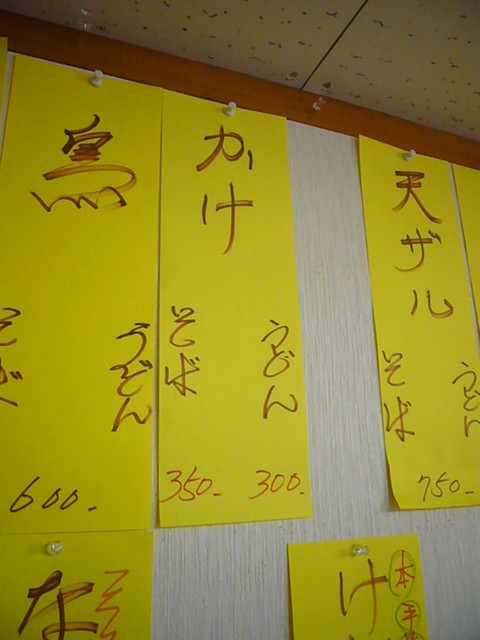 天ザル
うどん
そば
750-
かけ
うどん
そば
300.
350-
鳥
うどん
そば
600-
け
本
な
そ